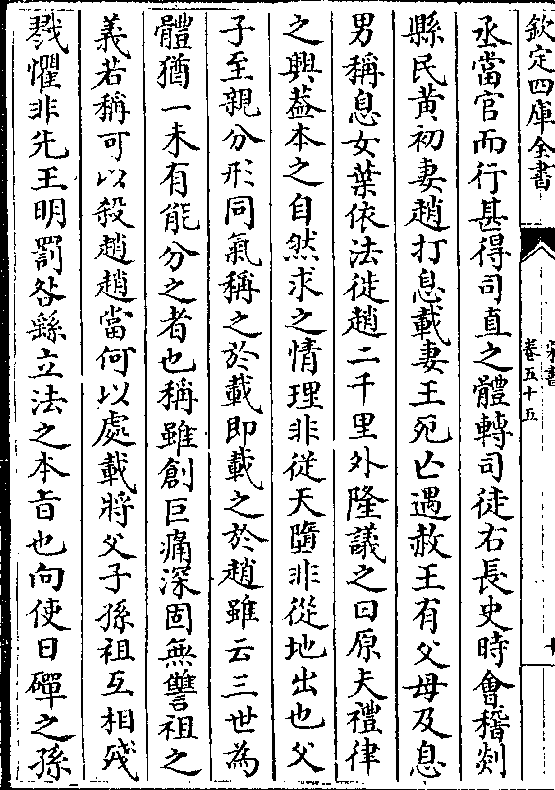 欽定四庫全書
宋書
卷五十五
丞當官而行甚得司直之體轉司徒右長史時會稽剡
縣民黃初妻趙打息載妻王死亡遇赦王有父母及息
男稱息女葉依法徙趙二千里外隆議之曰原夫禮律
之興葢本之自然求之情理非從天墮非從地出也父
子至親分形同氣稱之於載即載之於趙雖云三世為
體猶一未有能分之者也稱雖創巨痛深固無讐祖之
義若稱可以殺趙趙當何以處載將父子孫祖互相殘
戮懼非先王明罰咎繇立法之本旨也向使日磾之孫